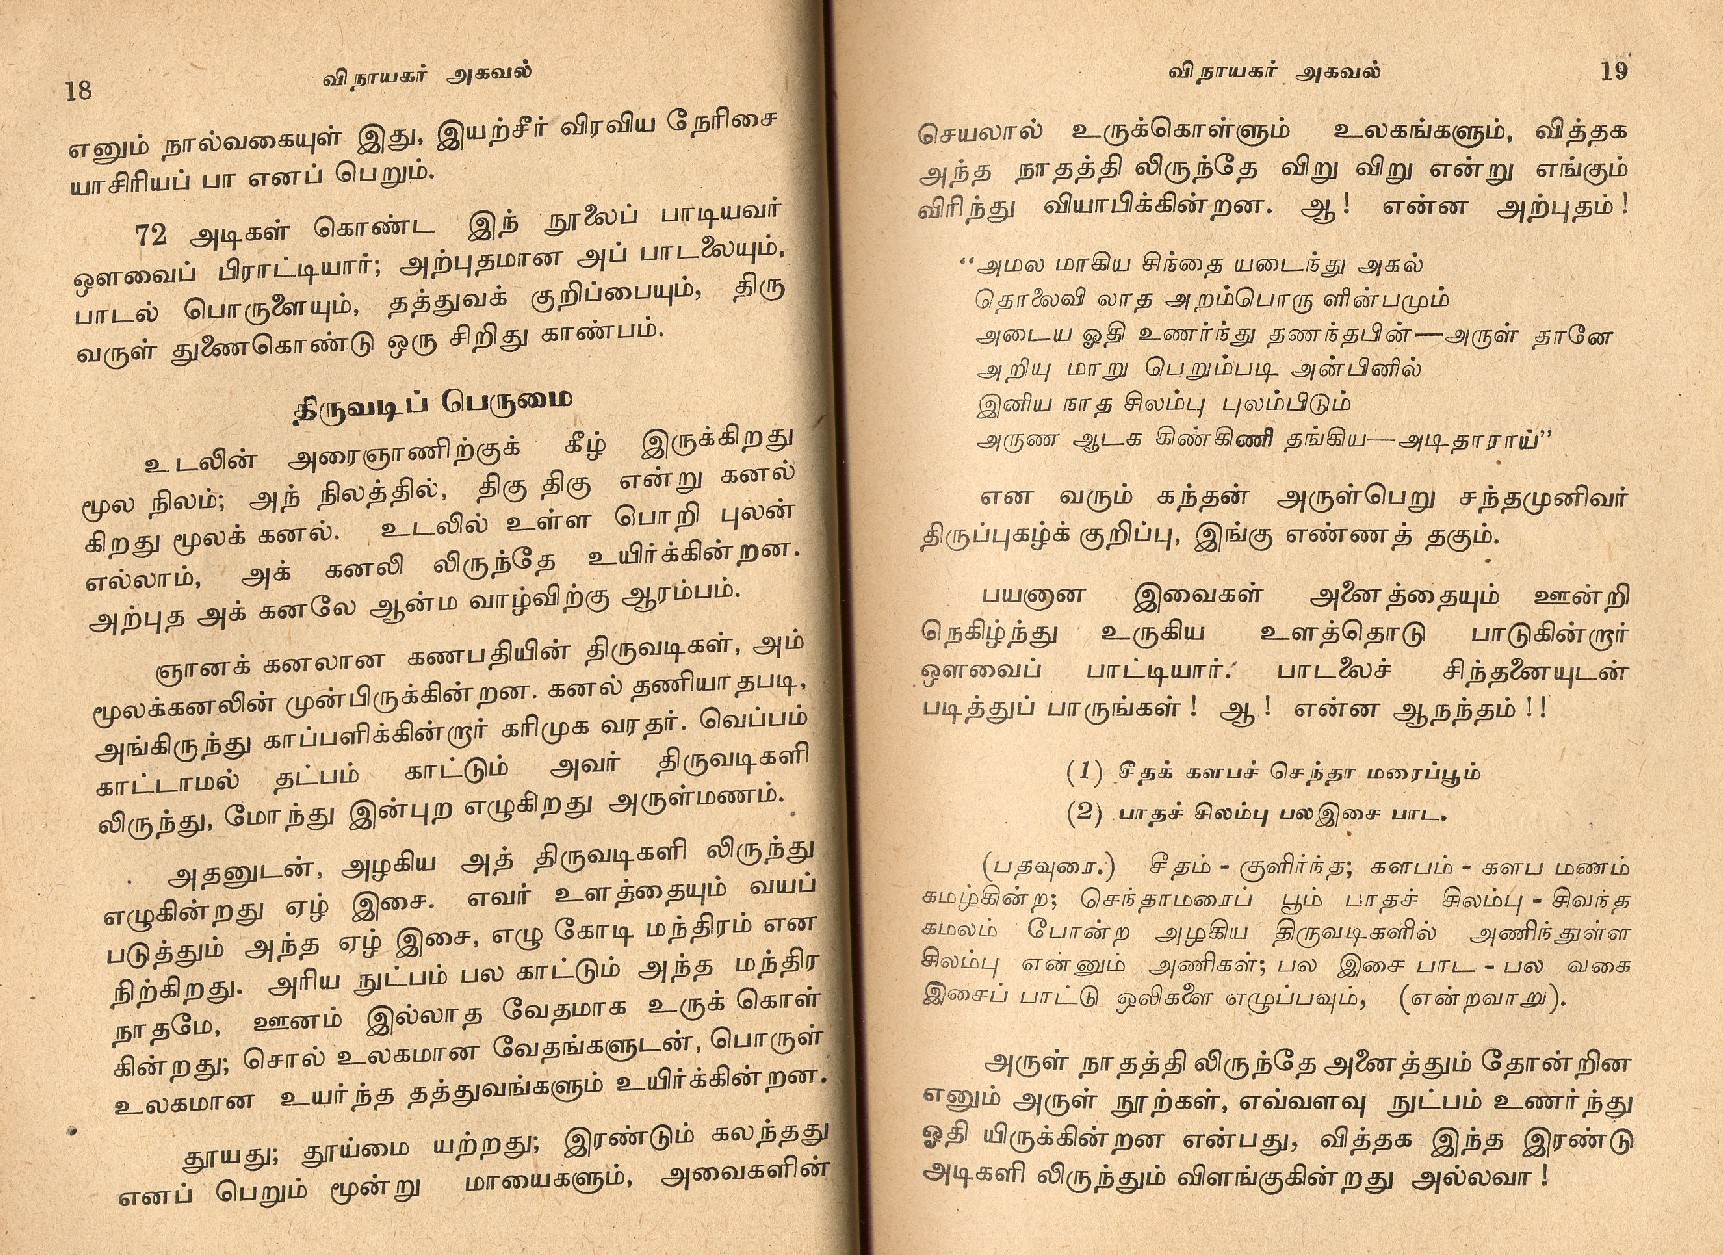 18
விநாயகர் அகவல்
எனும் நால்வகையுள் இது, இயற்சீர் விரவிய நேரிசை
யாசிரியப் பா எனப் பெறும்.
72 அடிகள் கொண்ட இந் நூலைப் பாடியவர்
ஔவைப் பிராட்டியார்; அற்புதமான அப் பாடலையும்,
பாடல் பொருளையும், தத்துவக் குறிப்பையும், திரு
வருள் துணைகொண்டு ஒரு சிறிது காண்பம்.
திருவடிப் பெருமை
உடலின் அரைஞாணிற்குக் கீழ் இருக்கிறது
மூல நிலம்; அந் நிலத்தில், திகு திகு என்று கனல்
கிறது மூலக் கனல். உடலில் உள்ள பொறி புலன்
எல்லாம், அக் கனலி லிருந்தே உயிர்க்கின்றன.
அற்புத அக் கனலே ஆன்ம வாழ்விற்கு ஆரம்பம்.
ஞானக் கனலான கணபதியின் திருவடிகள், அம்
மூலக்கனலின் முன்பிருக்கின்றன. கனல் தணியாதபடி,
அங்கிருந்து காப்பளிக்கின்றார் கரிமுக வரதர். வெப்பம்
காட்டாமல் தட்பம் காட்டும் அவர் திருவடிகளி
லிருந்து, மோந்து இன்புற எழுகிறது அருள்மணம்.
அதனுடன், அழகிய அத் திருவடிகளி லிருந்து
எழுகின்றது ஏழ் இசை. எவர் உளத்தையும் வயப்
படுத்தும் அந்த ஏழ் இசை, எழு கோடி மந்திரம் என
நிற்கிறது. அரிய நுட்பம் பல காட்டும் அந்த மந்திர
நாதமே, ஊனம் இல்லாத வேதமாக உருக் கொள்
கின்றது; சொல் உலகமான வேதங்களுடன், பொருள்
உலகமான உயர்ந்த தத்துவங்களும் உயிர்க்கின்றன.
தூயது; தூய்மை யற்றது; இரண்டும் கலந்தது
எனப் பெறும் மூன்று மாயைகளும், அவைகளின்
விநாயகர் அகவல்
19
செயலால் உருக்கொள்ளும் உலகங்களும், வித்தக
அந்த நாதத்தி லிருந்தே விறு விறு என்று எங்கும்
விரிந்து வியாபிக்கின்றன. ஆ! என்ன அற்புதம்!
“அமல மாகிய சிந்தை யடைந்து அகல்
தொலைவி லாத அறம்பொரு ளின்பமும்
அடைய ஓதி உணர்ந்து தணந்தபின்—அருள் தானே
அறியு மாறு பெறும்படி அன்பினில்
இனிய நாத சிலம்பு புலம்பிடும்
அருண ஆடக கிண்கிணி தங்கிய—அடிதாராய்”
என வரும் கந்தன் அருள்பெறு சந்தமுனிவர்
திருப்புகழ்க் குறிப்பு, இங்கு எண்ணத் தகும்.
பயனான இவைகள் அனைத்தையும் ஊன்றி
நெகிழ்ந்து உருகிய உளத்தொடு பாடுகின்றார்
ஔவைப் பாட்டியார். பாடலைச் சிந்தனையுடன்
படித்துப் பாருங்கள்! ஆ! என்ன ஆநந்தம்!!
(1) சீதக் களபச் செந்தா மரைப்பூம்
(2) பாதச் சிலம்பு பலஇசை பாட.
(பதவுரை.) சீதம் - குளிர்ந்த; களபம் - களப மணம்
கமழ்கின்ற; செந்தாமரைப் பூம் பாதச் சிலம்பு - சிவந்த
கமலம் போன்ற அழகிய திருவடிகளில் அணிந்துள்ள
சிலம்பு என்னும் அணிகள்; பல இசை பாட - பல வகை
இசைப் பாட்டு ஒலிகளை எழுப்பவும், (என்றவாறு).
அருள் நாதத்தி லிருந்தே அனைத்தும் தோன்றின
எனும் அருள் நூற்கள், எவ்வளவு நுட்பம் உணர்ந்து
ஓதி யிருக்கின்றன என்பது, வித்தக இந்த இரண்டு
அடிகளி லிருந்தும் விளங்குகின்றது அல்லவா!